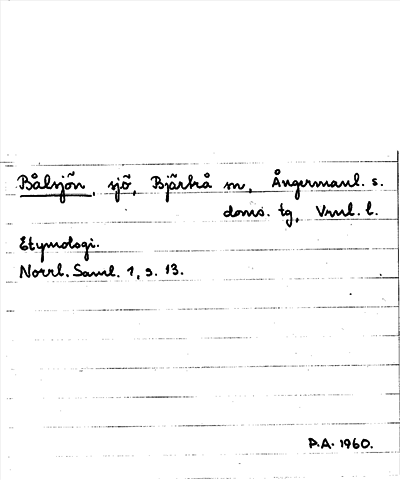 Bålsjön, sjö, Bjärtrå sn, Ångermanl. s.
doms. tg, Vnul. l.
Etymologi.
Norrl. Saml. 1, s. 13.
P.A. 1960.